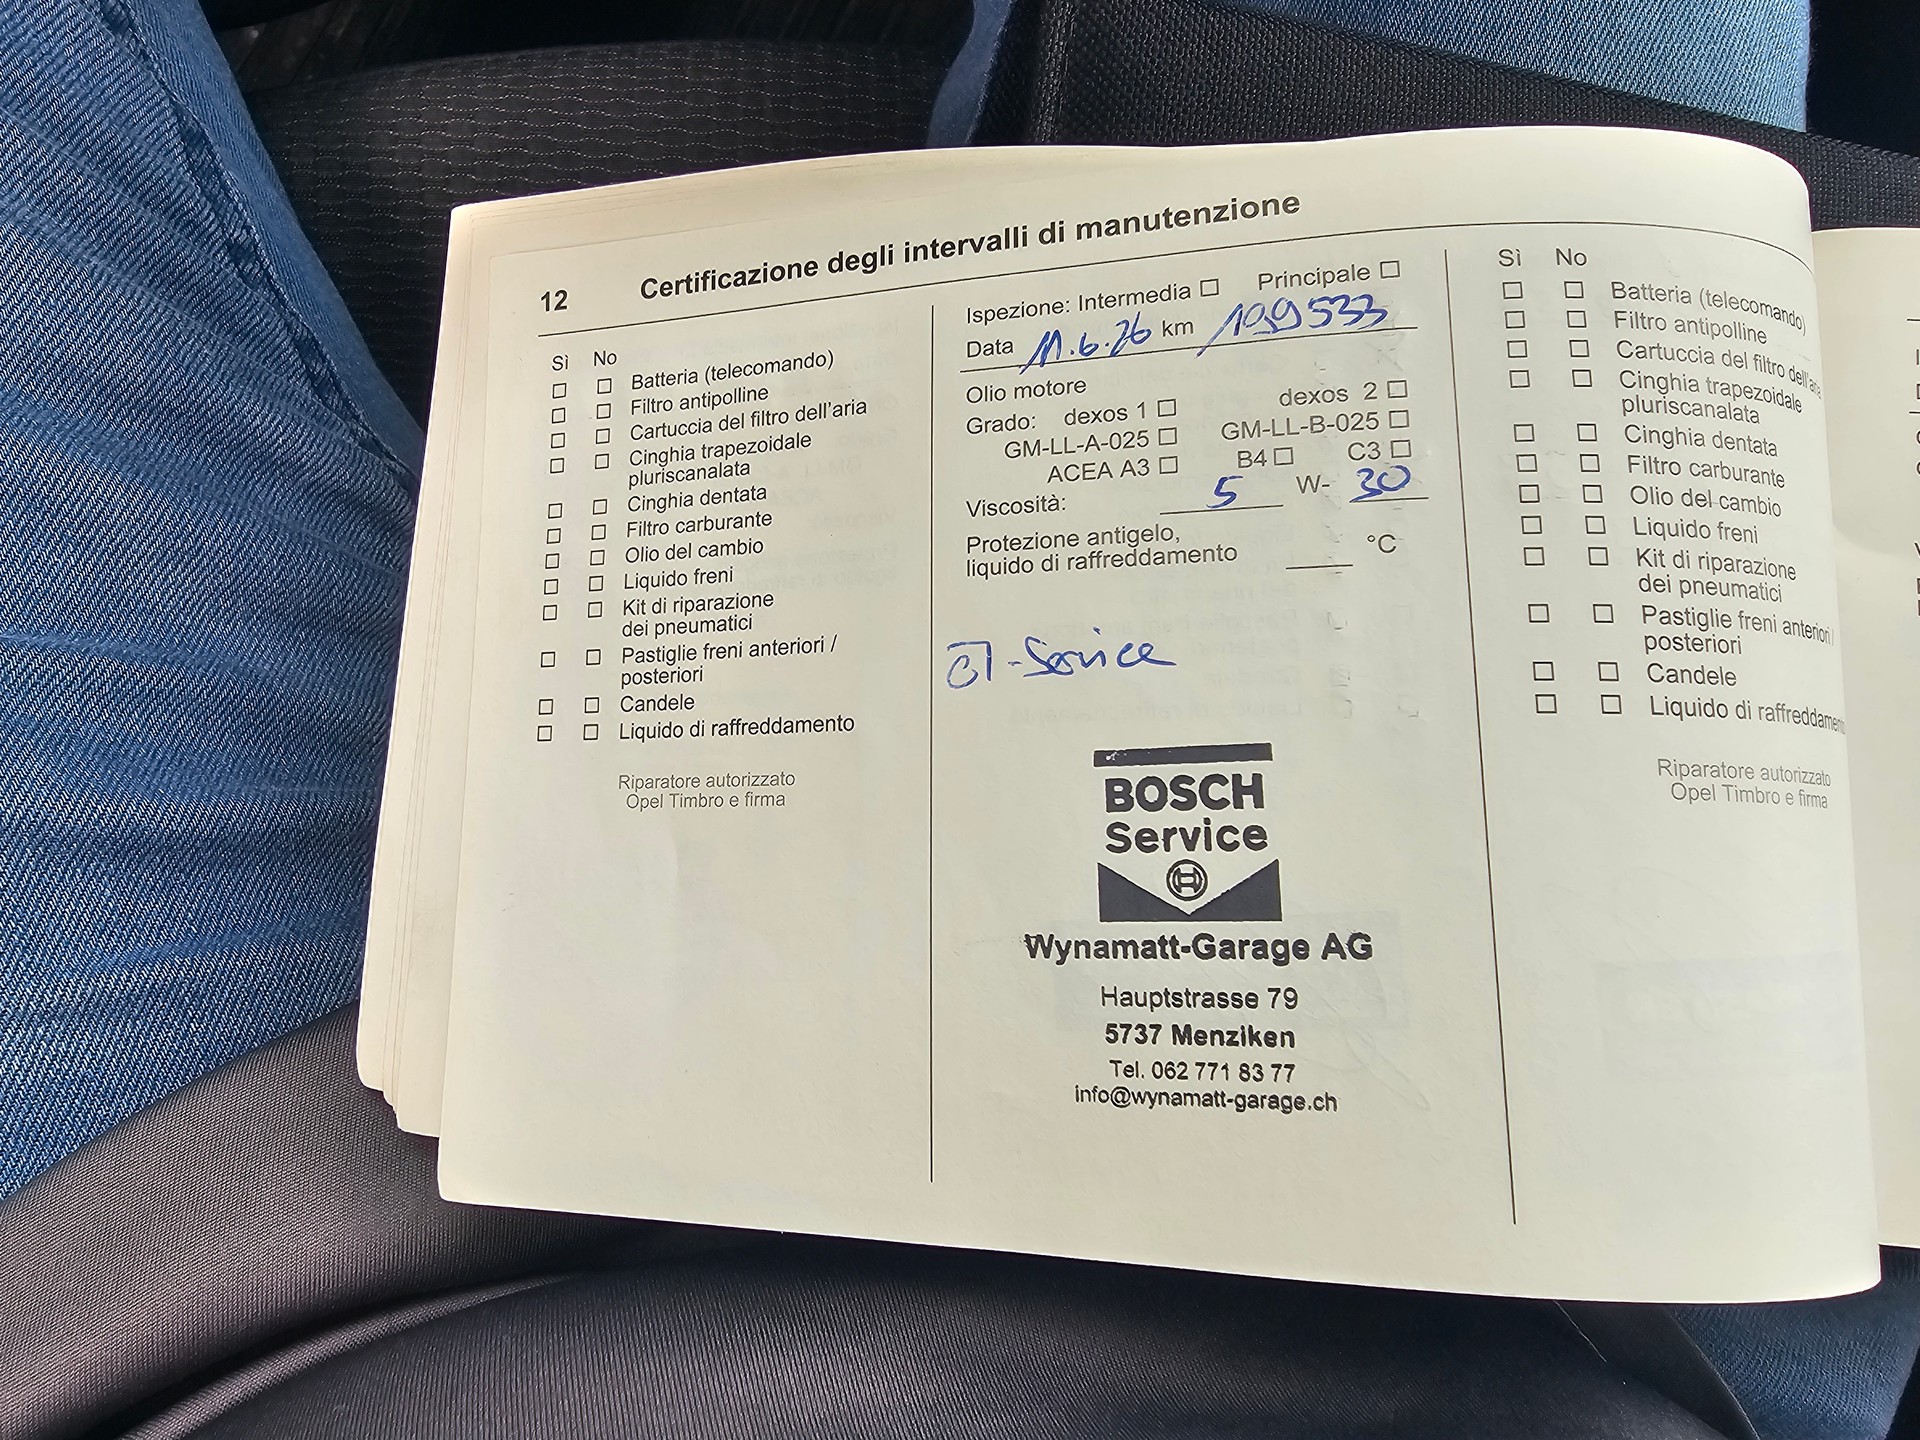 12 Certificazione degli intervalli di manutenzione
Sì No
Batteria (telecomando)
Filtro antipolline
Cartuccia del filtro dell'aria
Cinghia trapezoidale
pluriscanalata
Cinghia dentata
Filtro carburante
Olio del cambio
Liquido freni
Kit di riparazione
dei pneumatici
Pastiglie freni anteriori /
posteriori
Candele
Liquido di raffreddamento
Riparatore autorizzato
Opel Timbro e firma
Ispezione: Intermedia Principale
Data 11.6.26 km 199533
Olio motore
Grado: dexos 1 dexos 2
GM-LL-A-025 GM-LL-B-025
ACEA A3 B4 C3
Viscosità: 5 W- 30
Protezione antigelo,
liquido di raffreddamento °C
Service
BOSCH
Service
Wynamatt-Garage AG
Hauptstrasse 79
5737 Menziken
Tel. 062 771 83 77
info@wynamatt-garage.ch
Sì No
Batteria (telecomando)
Filtro antipolline
Cartuccia del filtro dell'aria
Cinghia trapezoidale
pluriscanalata
Cinghia dentata
Filtro carburante
Olio del cambio
Liquido freni
Kit di riparazione
dei pneumatici
Pastiglie freni anteriori /
posteriori
Candele
Liquido di raffreddamento
Riparatore autorizzato
Opel Timbro e firma